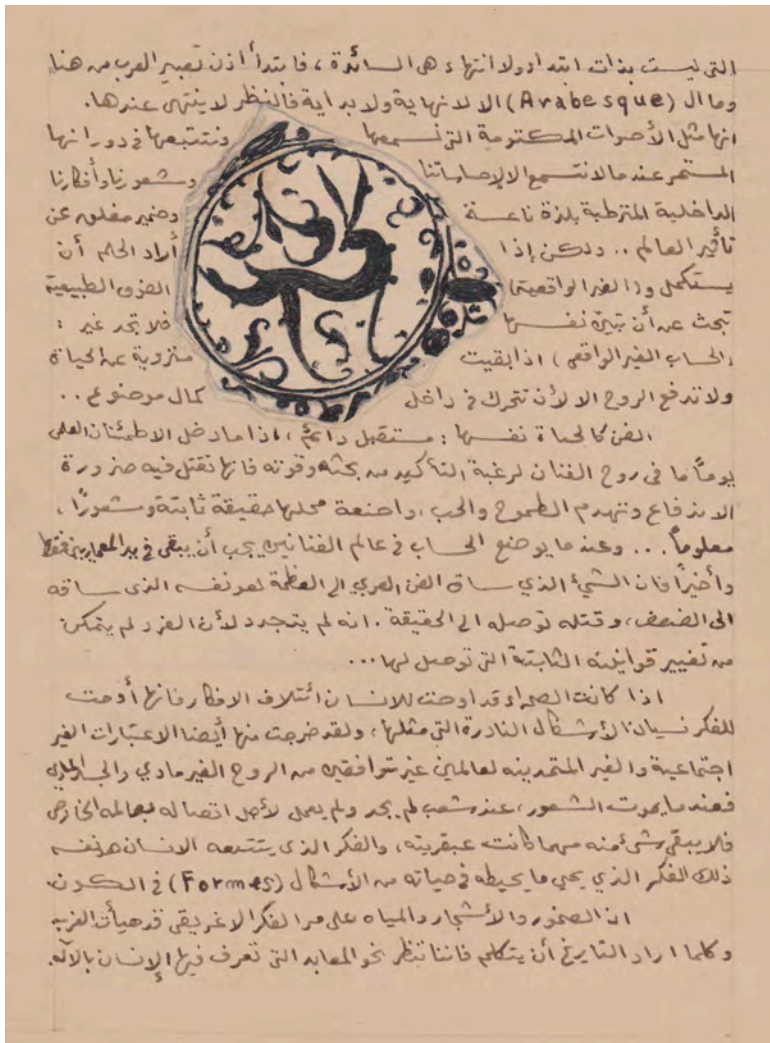 التى ليست بذات ابتداء ولا انتهاء هى السائدة ، فابتدأ اذن تعبير العرب من هنا
وما ال (Arabesque) الا لانهاية ولا بداية فالنظر لا ينتهى عندها.
انها مثل الأصوات المكتومة التى نسمعها ونتتبعها فى دورانها
المستمر عندما لانستمع الا لإحساساتنا وشعورنا وأفكارنا
الداخلية المترطبة بلذة ناعسة وضمير مغلق عن
تأثير العالم .. ولكن إذا أراد الحلم أن
يستكمل و(الغير الواقعية) الطبيعية
تبحث عن أن نفسها فلا تجد غير :
(الحساب الغير الواقعى) اذا بقيت منزوية عن الحياة
ولا تدفع الروح الا لأن تتحرك فى داخل كمال موضوع ..
الفن كالحياة نفسها : مستقبل دائم ، اذا ما دخل الاطمئنان العلمى
يوماً ما فى روح الفنان لرغبة التأكيد من بحثه وقوته فانها تقتل فيه ضرورة
الاندفاع وتهدم الطموح والحب ، واضعة محلها حقيقة ثابتة وشعورًا ،
معلوماً ... وعندما يوضع الحساب فى عالم الفنانين يجب أن يبقى فى يد المعماريين فقط
وأخيراً فان الشيء الذي ساق الفن العربي الى العظمة هو نفسه الذى ساقه
الى الضعف ، وقتله توصله الى الحقيقة . انه لم يتجدد لأن الفرد لم يتمكن
من تغيير قوانينه الثابتة التى توصل لها ...
اذا كانت الصحراء قد اوحت للانسان ائتلاف الافكار فانها أوحت
للفكر نسيان الأشكال النادرة التى مثلها ، ولقد خرجت منها أيضا الاعتبارات الغير
اجتماعية والغير المتمدينه لعالمين غير متوافقين من الروح الغير مادي والجسد المادي
فعندما يموت الشعور ، عند شعب لم يجد ولم يعمل لأجل اتصاله بعالمه الخارجى
فلا يبقى شئ منه مهما كانت عبقريته ، والفكر الذى يتتبعه الانسان هو نفسه
ذلك الفكر الذي يحي ما يحيطه فى حياته من الأشكال (Formes) فى الكون.
ان الصخور والأشجار والمياه على مر الفكر الاغريقى قد هيأت الغرب
وكلما اراد التاريخ أن يتكلم فاننا ننظر نحو المعابد التى تعرف فيها الإنسان بالآله.